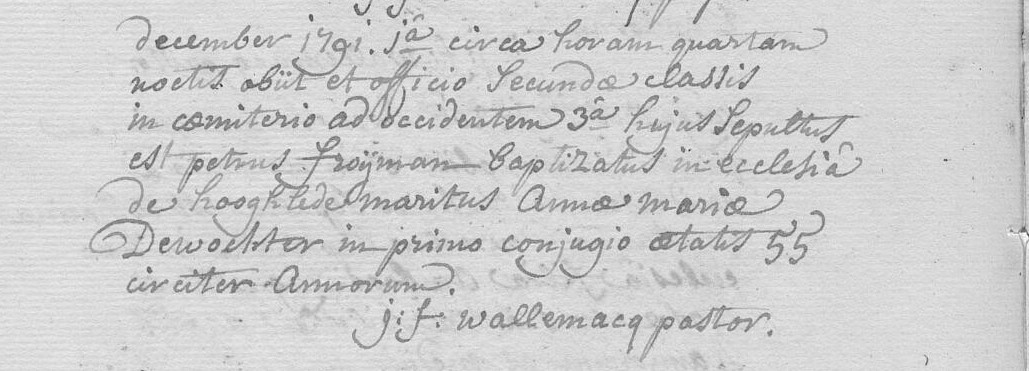 december 1791. jâ circa horam quartam
noctis obiit et officio Secundæ classis
in cæmiterio ad occidentem 3â hujus Sepultus
est petrus froÿman baptizatus in ecclesiâ
de hooghlede maritus Annæ mariæ
Dewachter in primo conjugio ætatis 55
circiter Annorum.
j: f: wallemacq pastor.